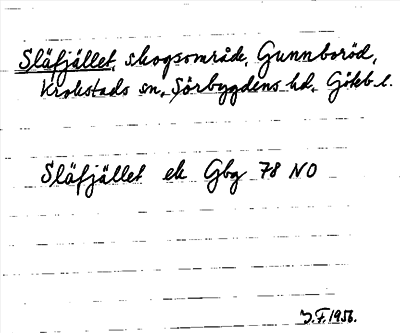 Släfjället, skogsområde, Gunnboröd,
Krokstads sn, Sörbygdens hd, Gbkb l.
Släfjället ek Gbg 78 NO
J.F. 1956.